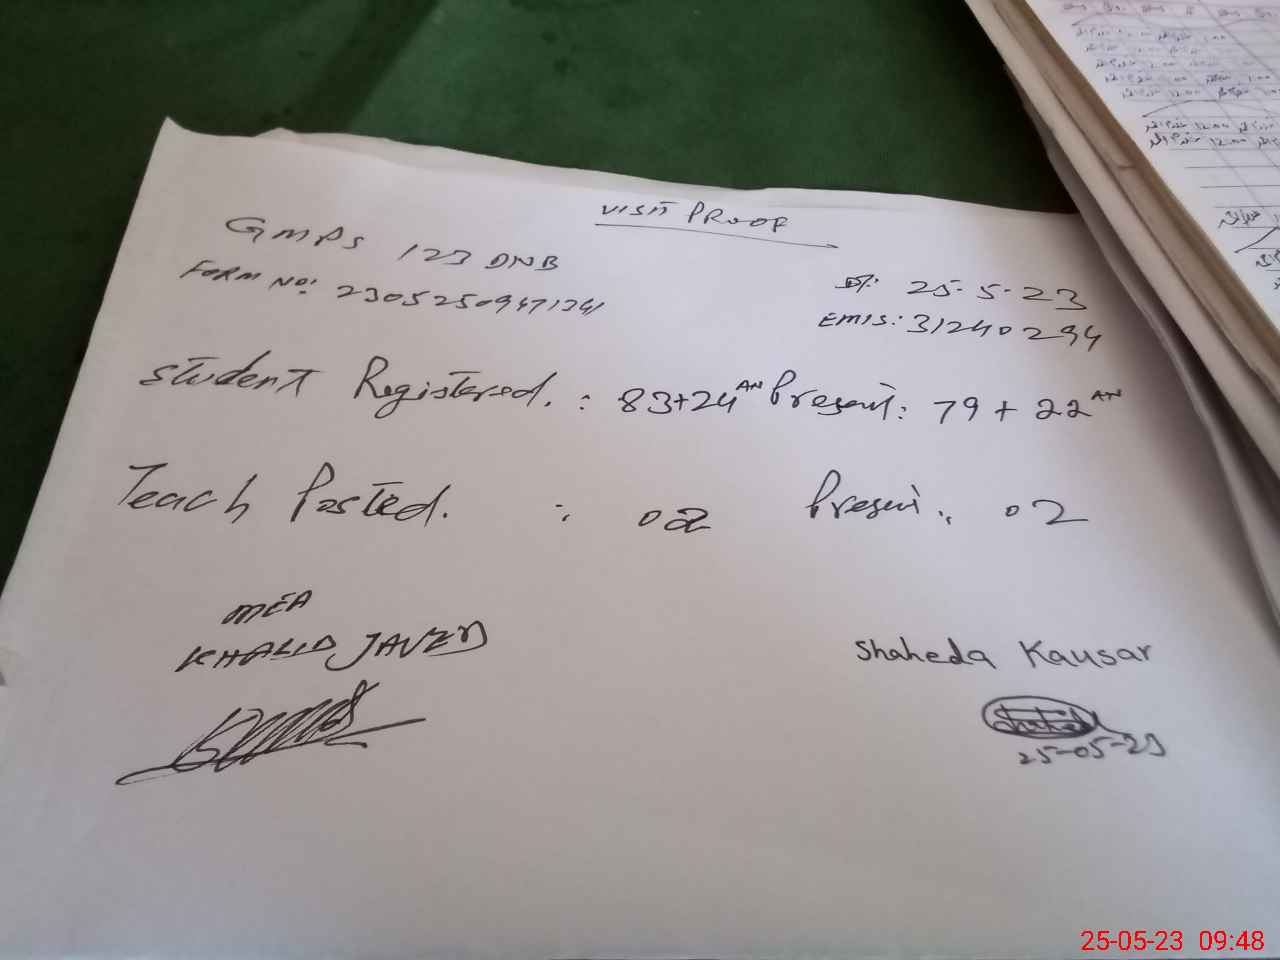 VISIT PROOF
GMPS 123 DNB
Dt: 25-5-23
FORM NO: 230525094711241
EMIS: 31240294
Student Registered. : 83+24 AN Present: 79 + 22 AN
Teach Posted. : 02 Present: 02
MEA
KHALID JAVED
Shaheda Kausar
25-05-23
25-05-23 09:48